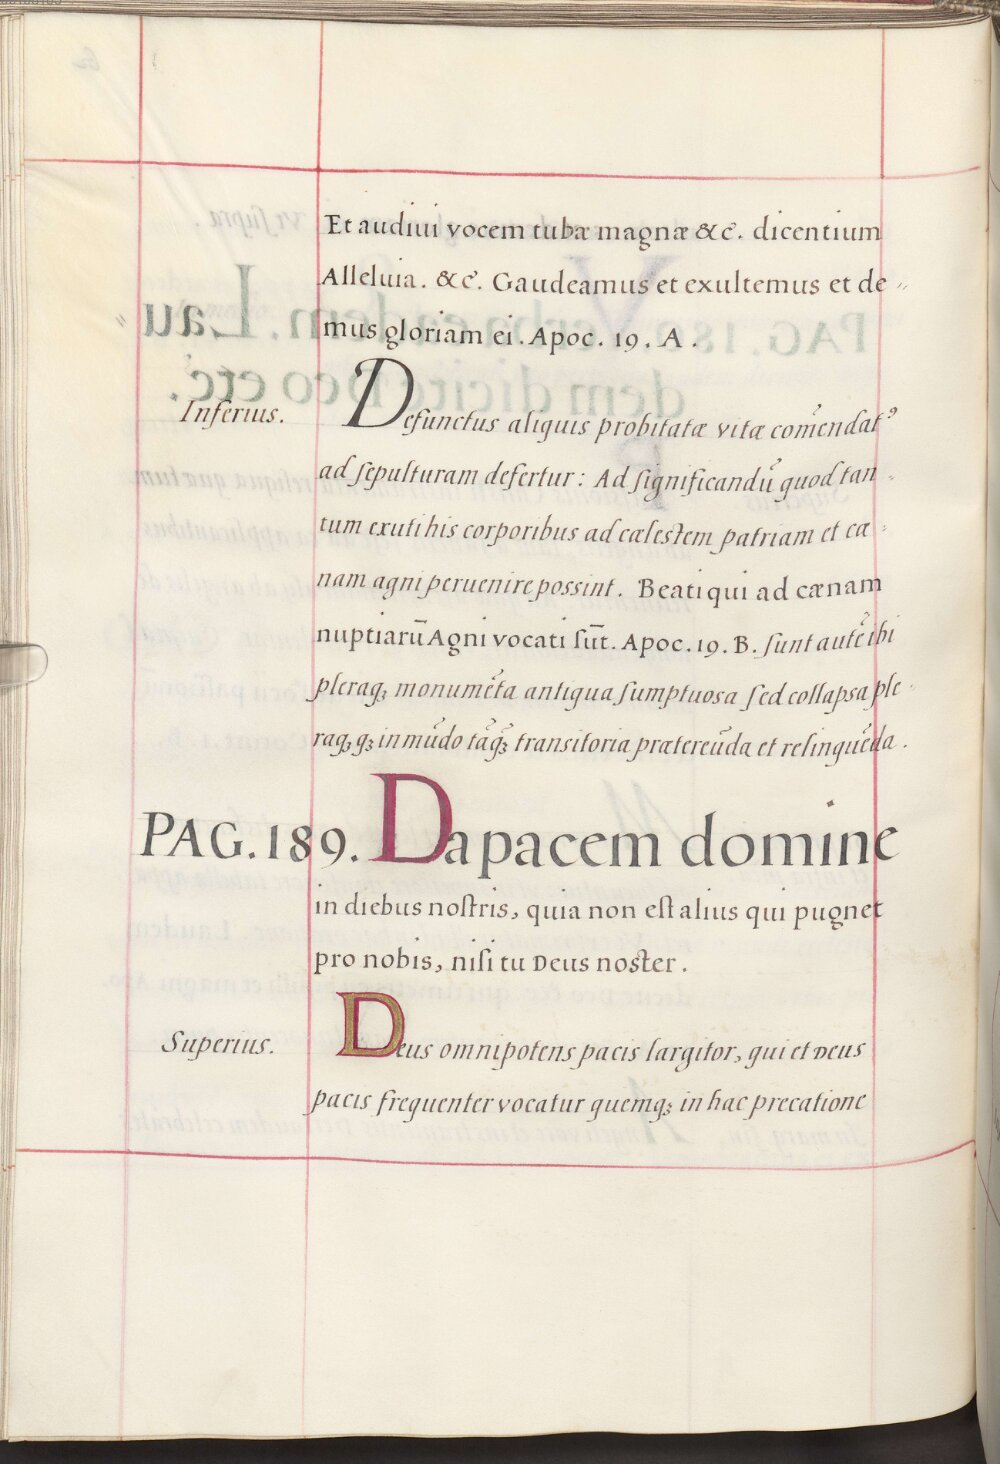 Et audiui vocem tubæ magnæ &c̃. dicentium
Alleluia. &c̃. Gaudeamus et exultemus et de〃
mus gloriam ei. Apoc. 19. A.
Inferius. Defunctus aliquis probitatæ vitæ com̃endatꝰ
ad ſepulturam defertur: Ad ſignificandũ quod tan-
tum exuti his corporibus ad cælestem patriam et cæ-
nam agni peruenire possint. Beati qui ad cænam
nuptiarū Agni vocati ſūt. Apoc. 19. B. ſunt autẽ ibi
pleraqꝫ monumẽta antiqua ſumptuosa ſed collapsa ple-
raqꝫ qꝫ in mũdo tãqꝫ̃ transitoria prætereũda et relinquẽda.
PAG. 189. Da pacem domine
in diebus noſtris, quia non eſt alius qui pugnet
pro nobis, niſi tu Deus noster.
Superius. Deus omnipotens pacis largitor, qui et Deus
pacis frequenter vocatur quemqꝫ in hac precatione